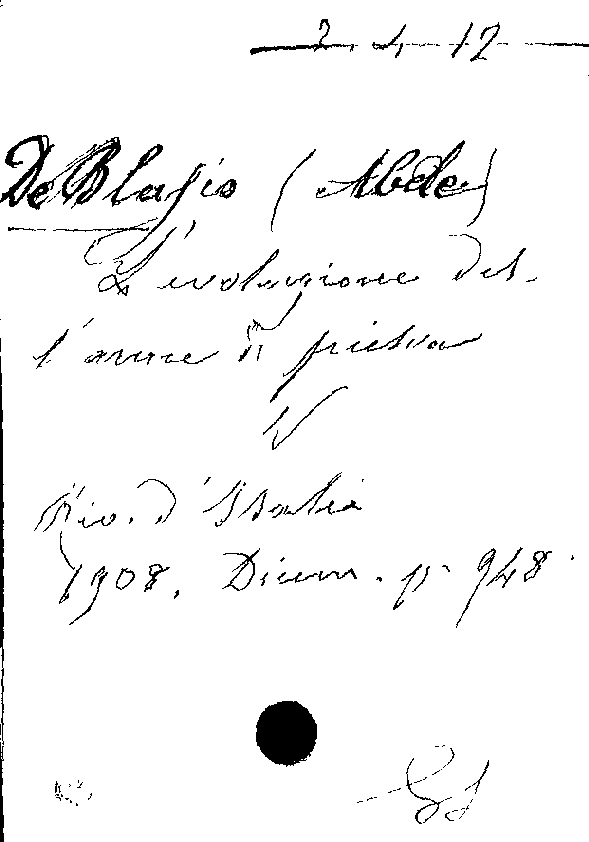 2. 4. 12
De Blasio (Abele)
L'evoluzione del-
l'arme di pietra
in
Riv. d'Italia
1908. Dicem. p. 948.